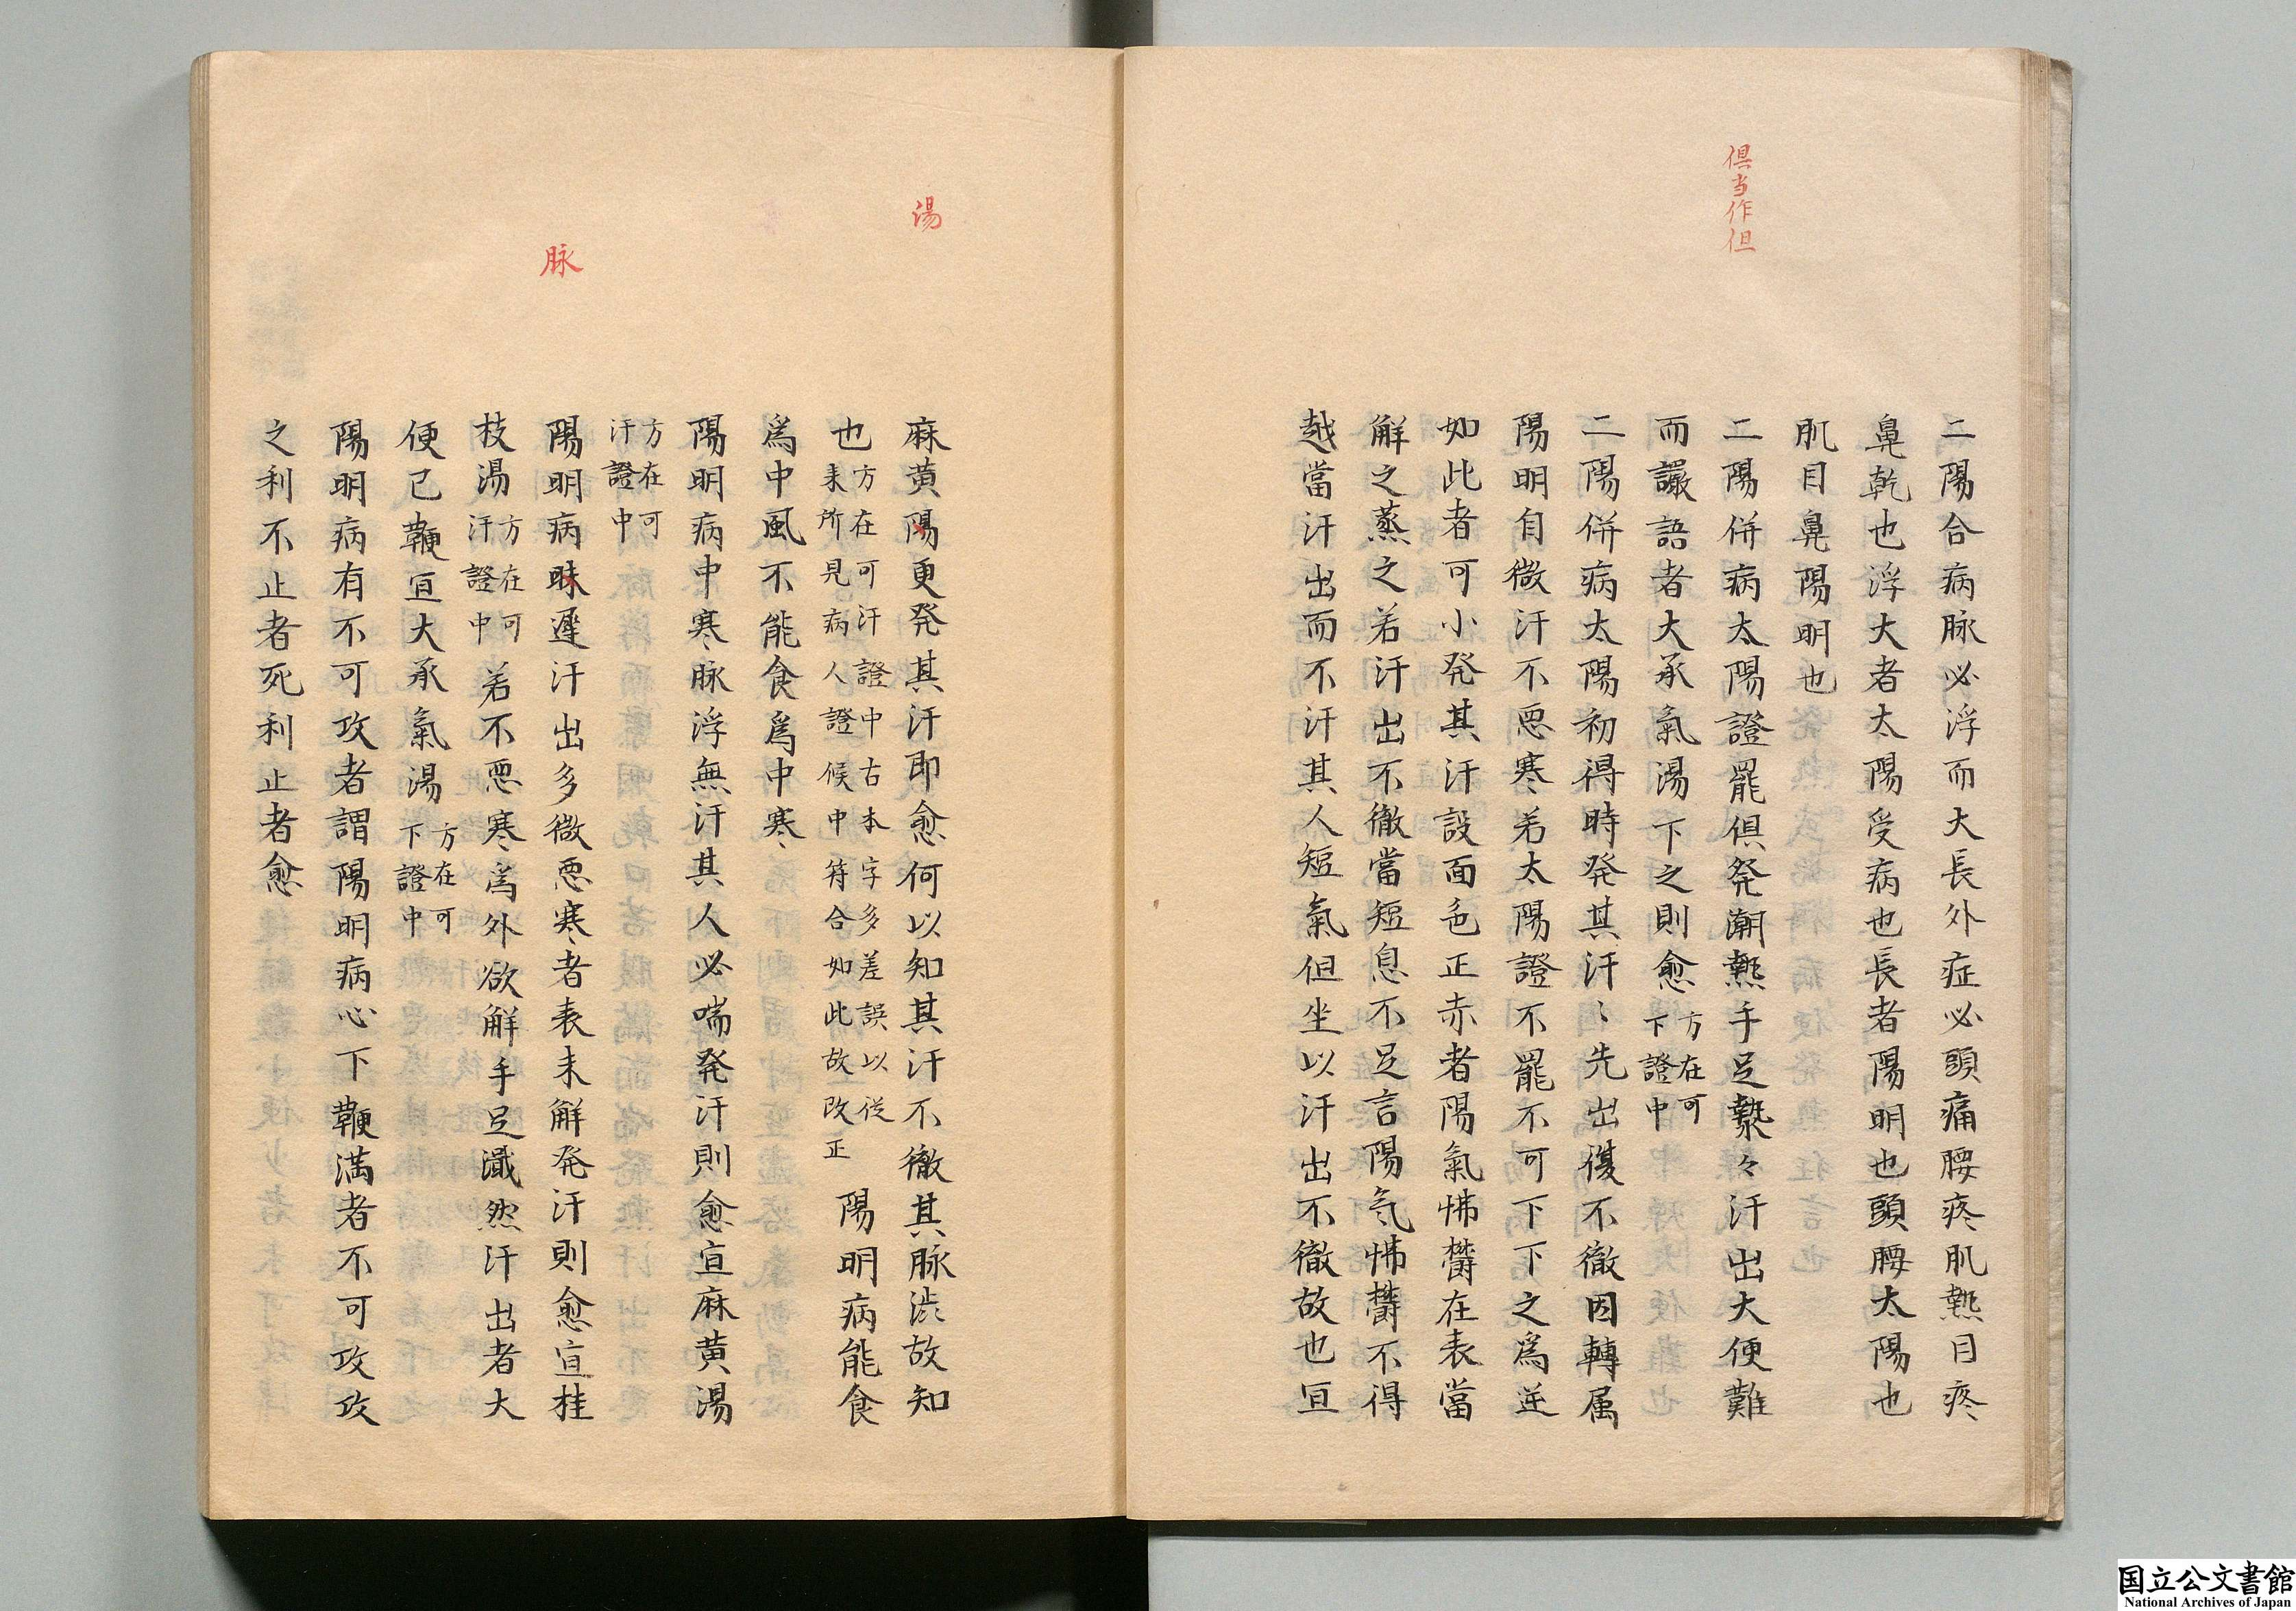 倶当作但
二陽合病脉必浮而大長外症必頭痛腰疼肌熱目疼
鼻乾也浮大者太陽受病也長者陽明也頭腰太陽也
肌目鼻陽明也
二陽併病太陽證罷倶発潮熱手足漐々汗出大便難
而讝語者大承氣湯下之則愈方在可下證中
二陽併病太陽初得時発其汗〻先出復不徹因轉属
陽明自微汗不悪寒若太陽證不罷不可下下之爲逆
如此者可小発其汗設面色正赤者陽氣怫欝在表當
解之蒸之若汗出不徹當短息不足言陽気怫欝不得
越當汗出而不汗其人短氣但坐以汗出不徹故也宜
湯
脉
麻黄陽更発其汗即愈何以知其汗不徹其脉渋故知
也方在可汗證中古本字多差誤以従耒所見病人證候中符合如此故改正 陽明病能食
爲中風不能食爲中寒
陽明病中寒脉浮無汗其人必喘発汗則愈宜麻黄湯
方在可汗證中
陽明病昧遲汗出多微悪寒者表未解発汗則愈宜桂
枝湯方在可汗證中若不悪寒爲外欲解手足濈然汗出者大
便已鞕宜大承氣湯方在可下證中
陽明病有不可攻者謂陽明病心下鞕満者不可攻攻
之利不止者死利止者愈
国立公文書館
National Archives of Japan